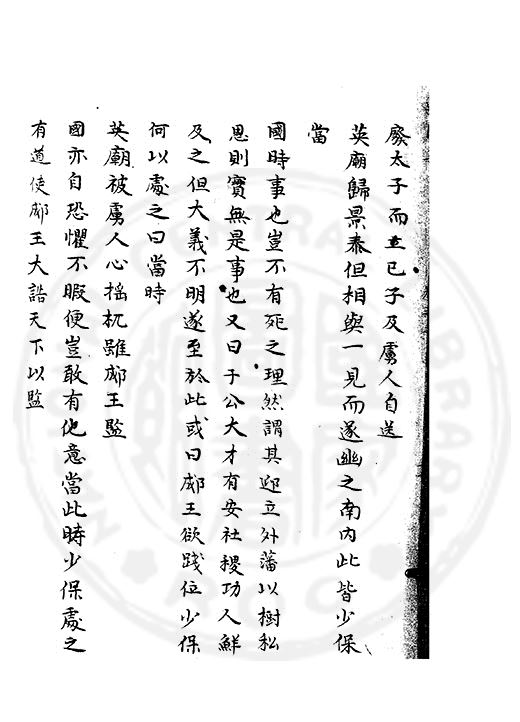 廢太子而立已子及虜人自送
英廟歸景泰但相與一見而遂幽之南内此皆少保
當
國時事也豈不有死之理然謂其迎立外藩以樹私
恩則實無是事也又曰于公大才有安社稷功人鮮
及之但大義不明遂至於此或曰郕王欲踐位少保
何以處之曰當時
英廟被虜人心摇杌雖郕王監
國亦自恐懼不暇便豈敢有他意當此時少保處之
有道使郕王大誥天下以監